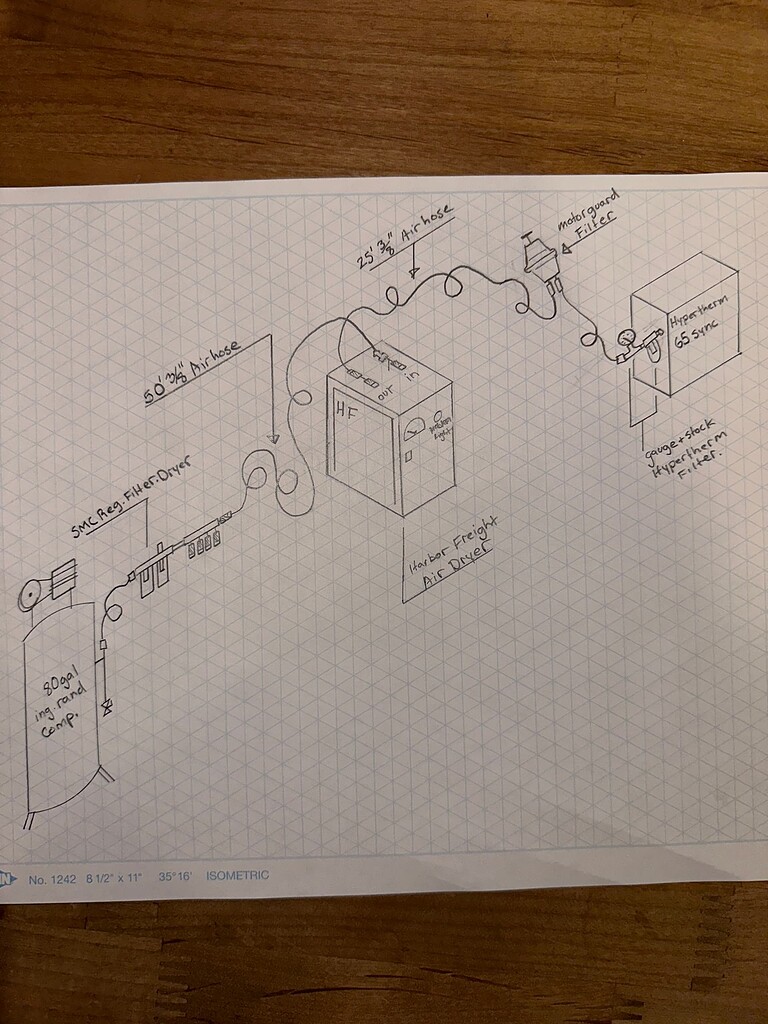 motorguard
Filter
25' 3/8" Airhose
Hypertherm
65 sync
50' 3/8" Airhose
in
out
HF
gauge + stock
Hypertherm
Filter.
SMC Reg. Filter. Dryer
Harbor Freight
Air Dryer
80gal
ing.rand
Comp.
No. 1242 8 1/2" x 11" 35°16' ISOMETRIC